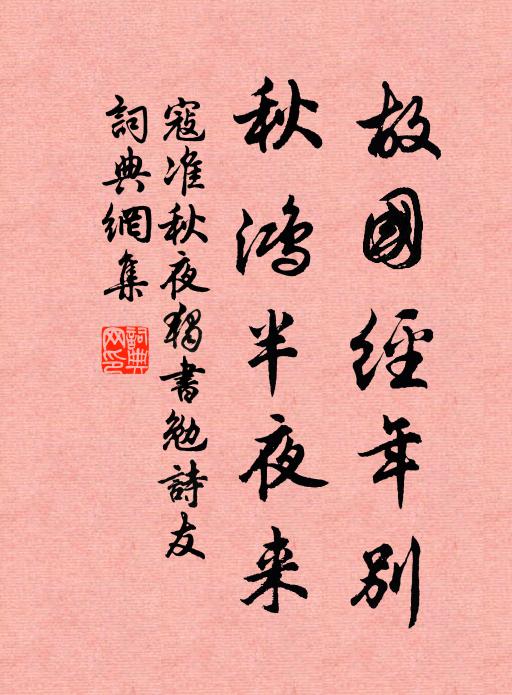 故國經年別
秋鴻半夜来
寇准秋夜獨書勉詩友
詞典網集
詞典
网印